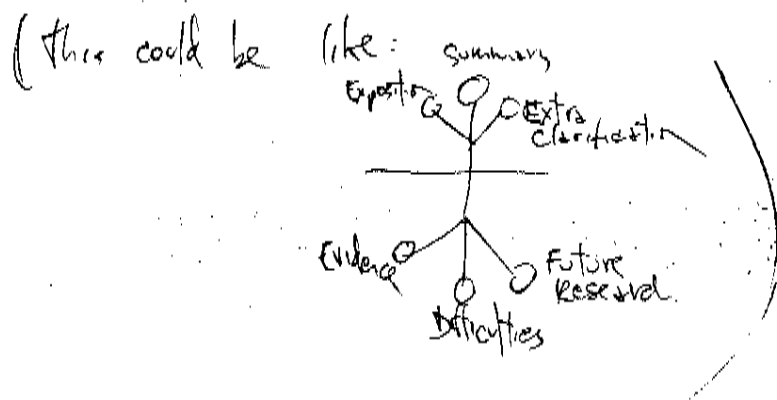 (this could be like:
Summary
Exposition
Extra
Clarification
Evidence
Future
Research.
Difficulties